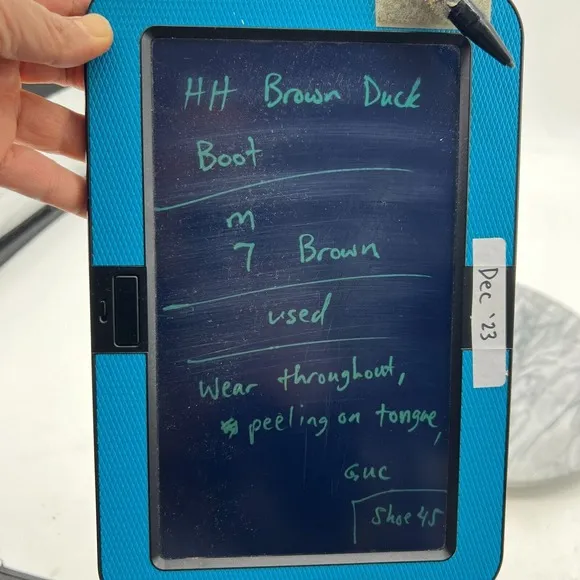 HH Brown Duck
Boot
m
7 Brown
used
Wear throughout,
peeling on tongue,
GUC
Shoe 45
Dec '23